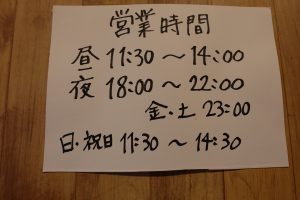 営業時間
昼 11:30 ～ 14:00
夜 18:00 ～ 22:00
金・土 23:00
日・祝日 11:30 ～ 14:30